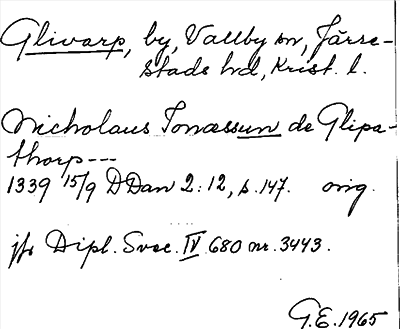 Glivarp, by, Vallby sn, Järre-
stads hd, Krist. l.
Nicholaus Tonæssun de Glipa-
thorp---
1339 15/9 DDan 2:12, s. 147. orig.
jfr Dipl. Svec. IV 680 nr. 3443.
G.E. 1965